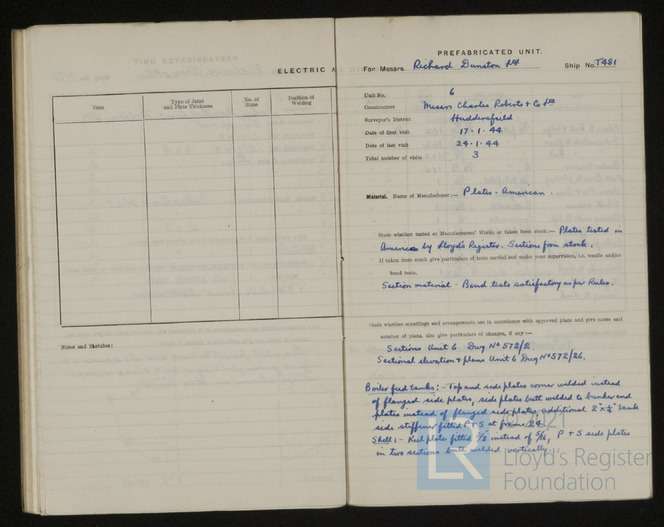 ELECTRIC A
Item
Type of Joint
and Plate Thickness
No. of
Runs
Position of
Welding
Notes and Sketches:
PREFABRICATED UNIT.
For Messrs. Richard Dunston Ltd Ship No. T481
Unit No. 6
Constructors Messrs Charles Roberts & Co Ltd
Surveyor's District Huddersfield
Date of first visit 17.1.44
Date of last visit 24.1.44
Total number of visits 3
Material. Name of Manufacturer:— Plates - American.
State whether tested at Manufacturers' Works or taken from stock:— Plates tested in
America by Lloyd's Register. Sections from stock.
If taken from stock give particulars of tests carried out under your supervision, i.e. tensile and/or
bend tests.
Section material - Bend tests satisfactory as per Rules.
State whether scantlings and arrangements are in accordance with approved plans and give name and
number of plans, also give particulars of changes, if any:—
Sections Unit 6 Dwg No 572/2.
Sectional elevation & plans Unit 6 Dwg No 572/26.
Boiler feed tanks:- Top and side plates corner welded instead
of flanged side plates, side plates butt welded to bunker end
plates instead of flanged side plates, additional 2" x ½" tank
side stiffener fitted P & S at frame 24.
Shell:- Keel plate fitted ½ instead of 5/16, P & S side plates
in two sections butt welded vertically.
LR
2021
Lloyd's Register
Foundation